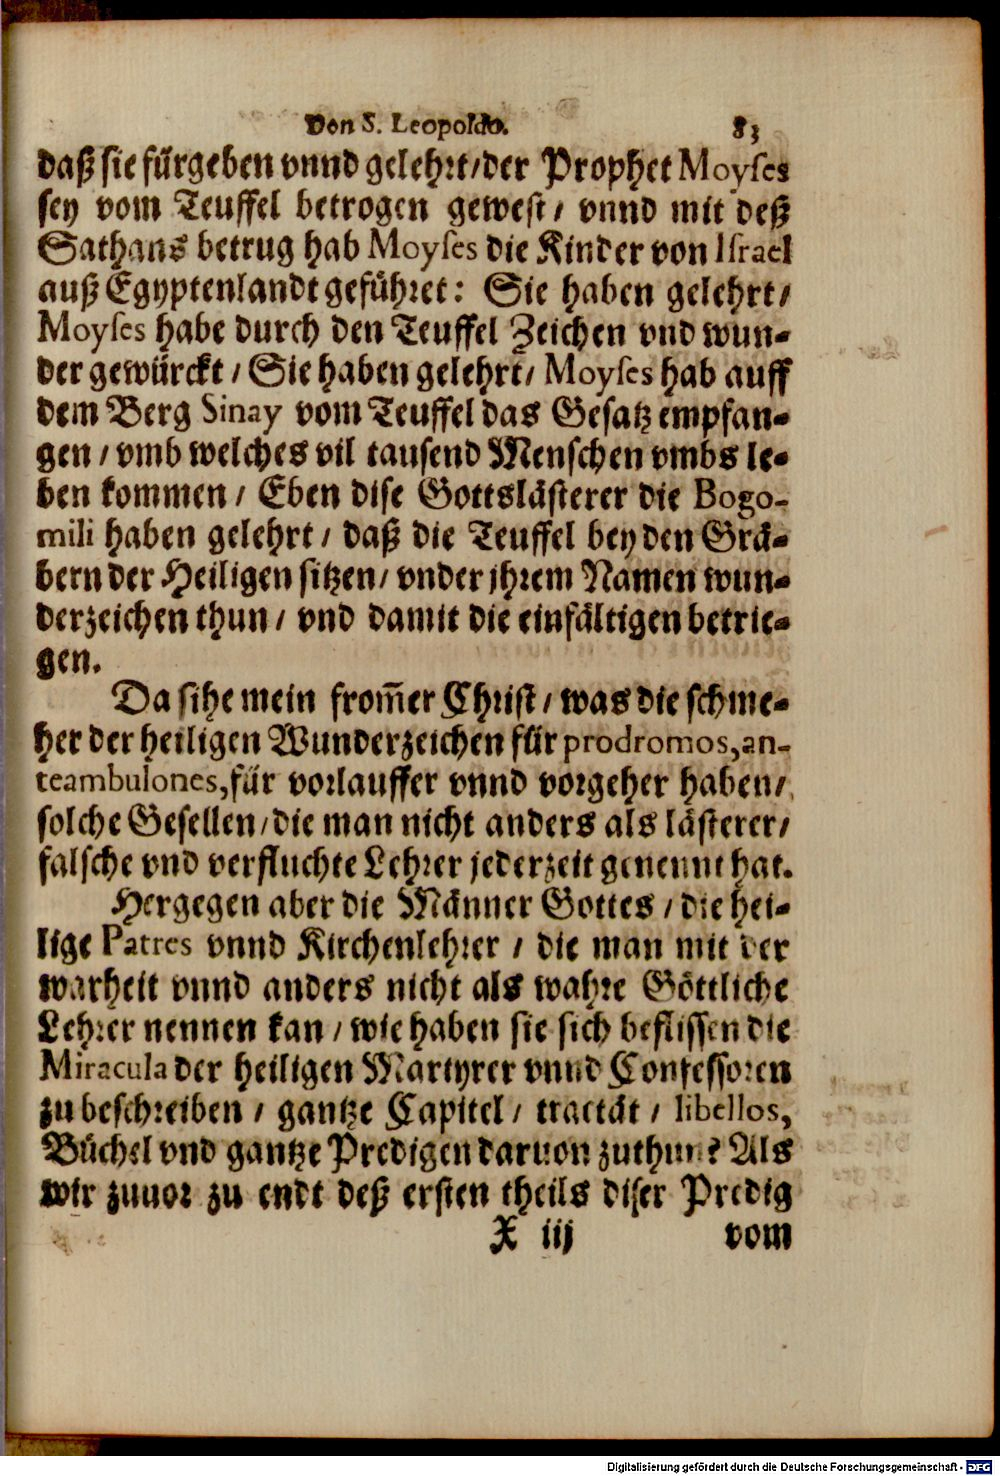 Von S. Leopoldo. 83
daß sie fürgeben vnnd gelehrt/der Prophet Moyses
sey vom Teuffel betrogen gewest/ vnnd mit deß
Sathans betrug hab Moyses die Kinder von Israel
auß Egyptenlandt geführet: Sie haben gelehrt/
Moyses habe durch den Teuffel Zeichen vnd wun-
der gewürckt/ Sie haben gelehrt/ Moyses hab auff
dem Berg Sinay vom Teuffel das Gesatz empfan-
gen/ vmb welches vil tausend Menschen vmbs le-
ben kommen/ Eben dise Gottslästerer die Bogo-
mili haben gelehrt/ daß die Teuffel bey den Grä-
bern der Heiligen sitzen/ vnder jhrem Namen wun-
derzeichen thun/ vnd damit die einfältigen betrie-
gen.
Da sihe mein from̃er Christ/ was die schme-
her der heiligen Wunderzeichen für prodromos, an-
teambulones, für vorlauffer vnnd vorgeher haben/
solche Gesellen/die man nicht anders als lästerer/
falsche vnd verfluchte Lehrer jederzeit genennt hat.
Hergegen aber die Männer Gottes/ die hei-
lige Patres vnnd Kirchenlehrer/ die man mit der
warheit vnnd anders nicht als wahre Göttliche
Lehrer nennen kan/ wie haben sie sich beflissen die
Miracula der heiligen Martyrer vnnd Confessoren
zu beschreiben/ gantze Capitel/ tractät/ libellos,
Büchel vnd gantze Predigen daruon zuthun? Als
wir zuuor zu endt deß ersten theils diser Predig
X iij vom
Digitalisierung gefördert durch die Deutsche Forschungsgemeinschaft - DFG